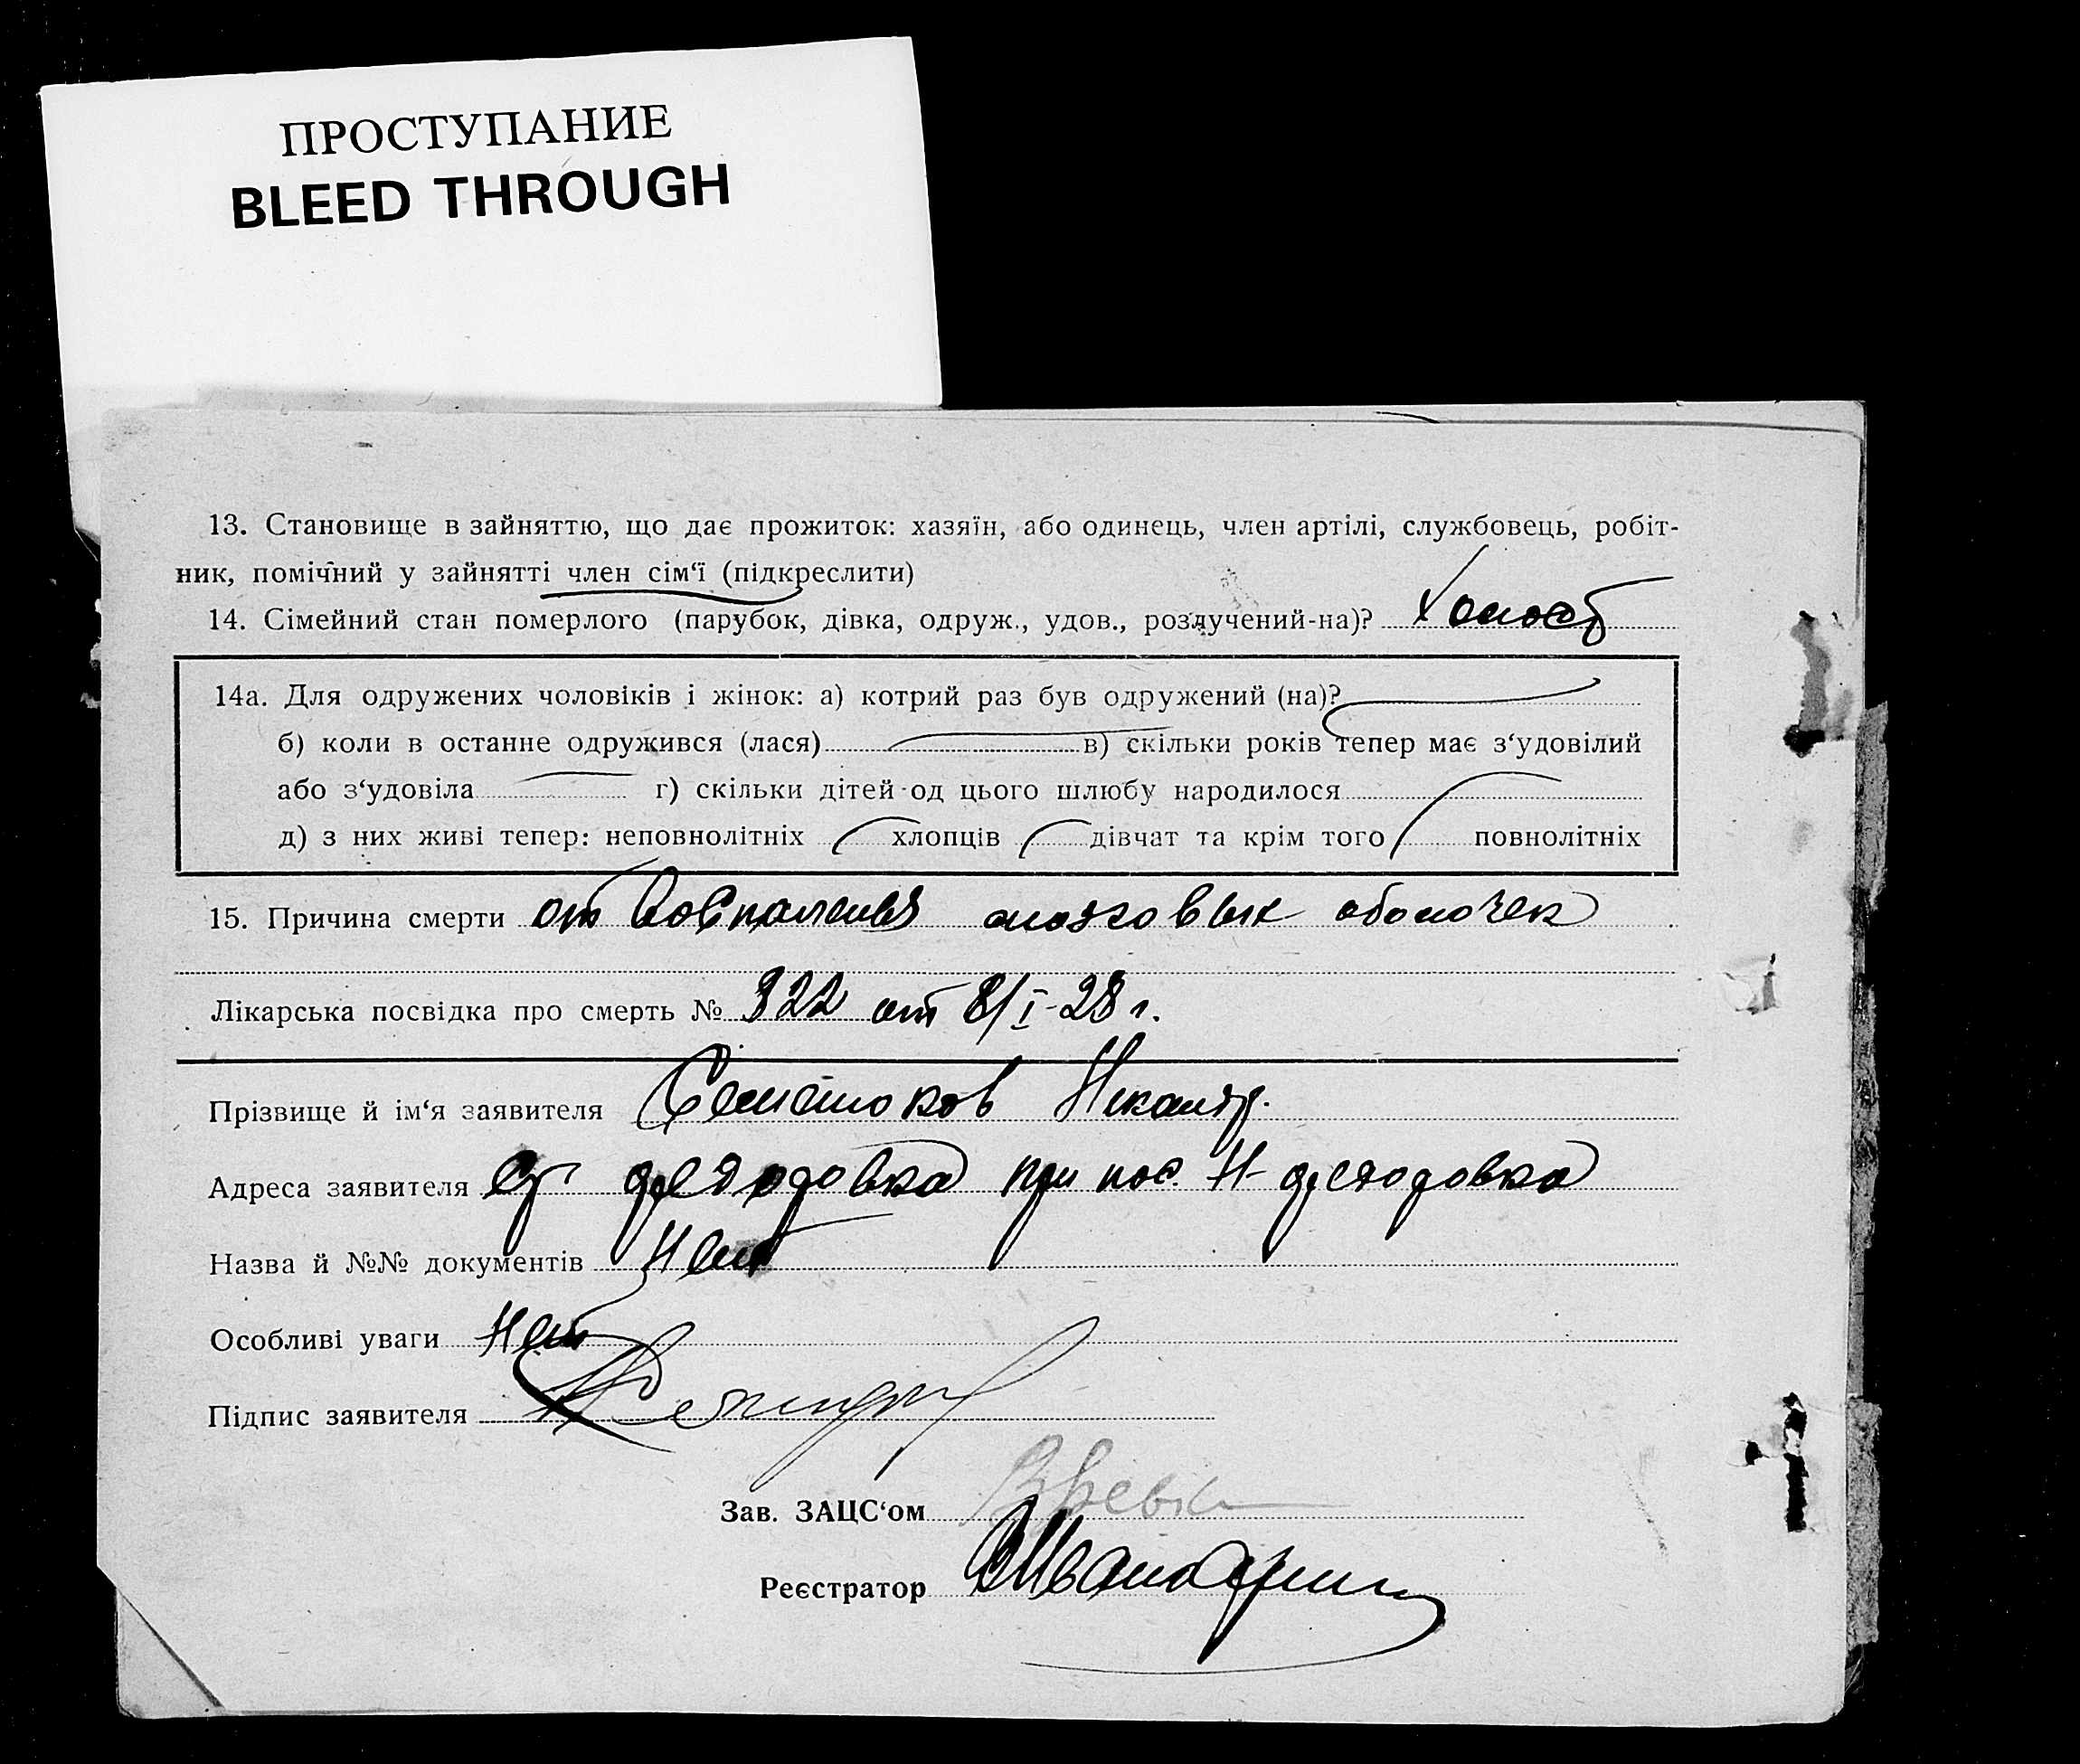 ПРОСТУПАНИЕ
BLEED THROUGH
13. Становище в зайняттю, що дає прожиток: хазяїн, або одинець, член артілі, службовець, робіт-
ник, помічний у зайнятті член сім‘ї (підкреслити)
14. Сімейний стан померлого (парубок, дівка, одруж., удов., розлучений-на)? Холост
14а. Для одружених чоловіків і жінок: а) котрий раз був одружений (на)?
б) коли в останнє одружився (лася) в) скільки років тепер має з‘удовілий
або з‘удовіла г) скільки дітей од цього шлюбу народилося
д) з них живі тепер: неповнолітніх хлопців дівчат та крім того повнолітніх
15. Причина смерти от Воспаления мозговых оболочек
Лікарська посвідка про смерть № 322 от 8/I-28 г.
Прізвище й ім‘я заявителя
Адреса заявителя при пос.
Назва й №№ документів Нет
Особливі уваги Нет
Підпис заявителя
Зав. ЗАЦС‘ом
Реєстратор